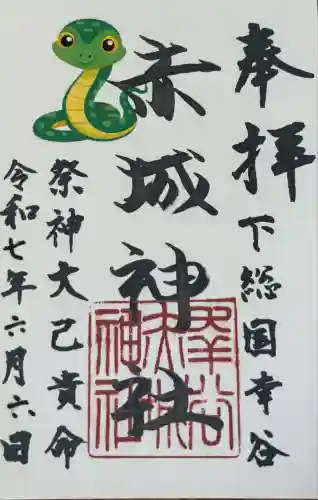 奉拝
下総国幸谷
赤城神社
祭神大己貴命
令和七年六月六日